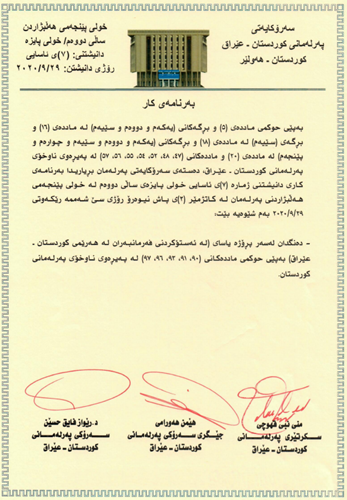 سەرۆکایەتی
پەرلەمانی کوردستان ـ عێراق
کوردستان ـ هەولێر
خولی پێنجەمی هەڵبژاردن
ساڵی دووەم/ خولی پایزە
دانیشتنی: (٧)ی ئاسایی
رۆژی دانیشتن: ٢٠٢٠/٩/٢٩
بەرنامەی کار
بەپێی حوکمی ماددەی (٥) و بڕگەکانی (یەکەم و دووەم و سێیەم) لە ماددەی (١٦) و
بڕگەی (سێیەم) لە ماددەی (١٨) و بڕگەکانی (یەکەم و دووەم و سێیەم و چوارەم و
پێنجەم) لە ماددەی (٢٠) و ماددەکانی (٤٧، ٤٨، ٥٢، ٥٤، ٥٥، ٥٦، ٥٧) لە پەیڕەوی ناوخۆی
پەرلەمانی کوردستان ـ عێراق، دەستەی سەرۆکایەتی پەرلەمان بڕیاریدا بەرنامەی
کاری دانیشتنی ژمارە (٧)ی ئاسایی خولی پایزەی ساڵی دووەم لە خولی پێنجەمی
هەڵبژاردنی پەرلەمان لە کاتژمێر (٢)ی پاش نیوەڕۆ رۆژی سێ شەممە رێکەوتی
٢٠٢٠/٩/٢٩ بەم شێوەیە بێت:
ـ دەنگدان لەسەر پڕۆژە یاسای (لە ئەستۆکردنی فەرمانبەران لە هەرێمی کوردستان ـ
عێراق) بەپێی حوکمی ماددەکانی (٩٠، ٩١، ٩٣، ٩٦، ٩٧) لە پەیڕەوی ناوخۆی پەرلەمانی
کوردستان.
منی نبی قهوچی
سکرتێری پەرلەمانی
کوردستان ـ عێراق
هێمن هەورامی
جێگری سەرۆکی پەرلەمانی
کوردستان ـ عێراق
د.رێواز فایق حسێن
سەرۆکی پەرلەمانی
کوردستان ـ عێراق